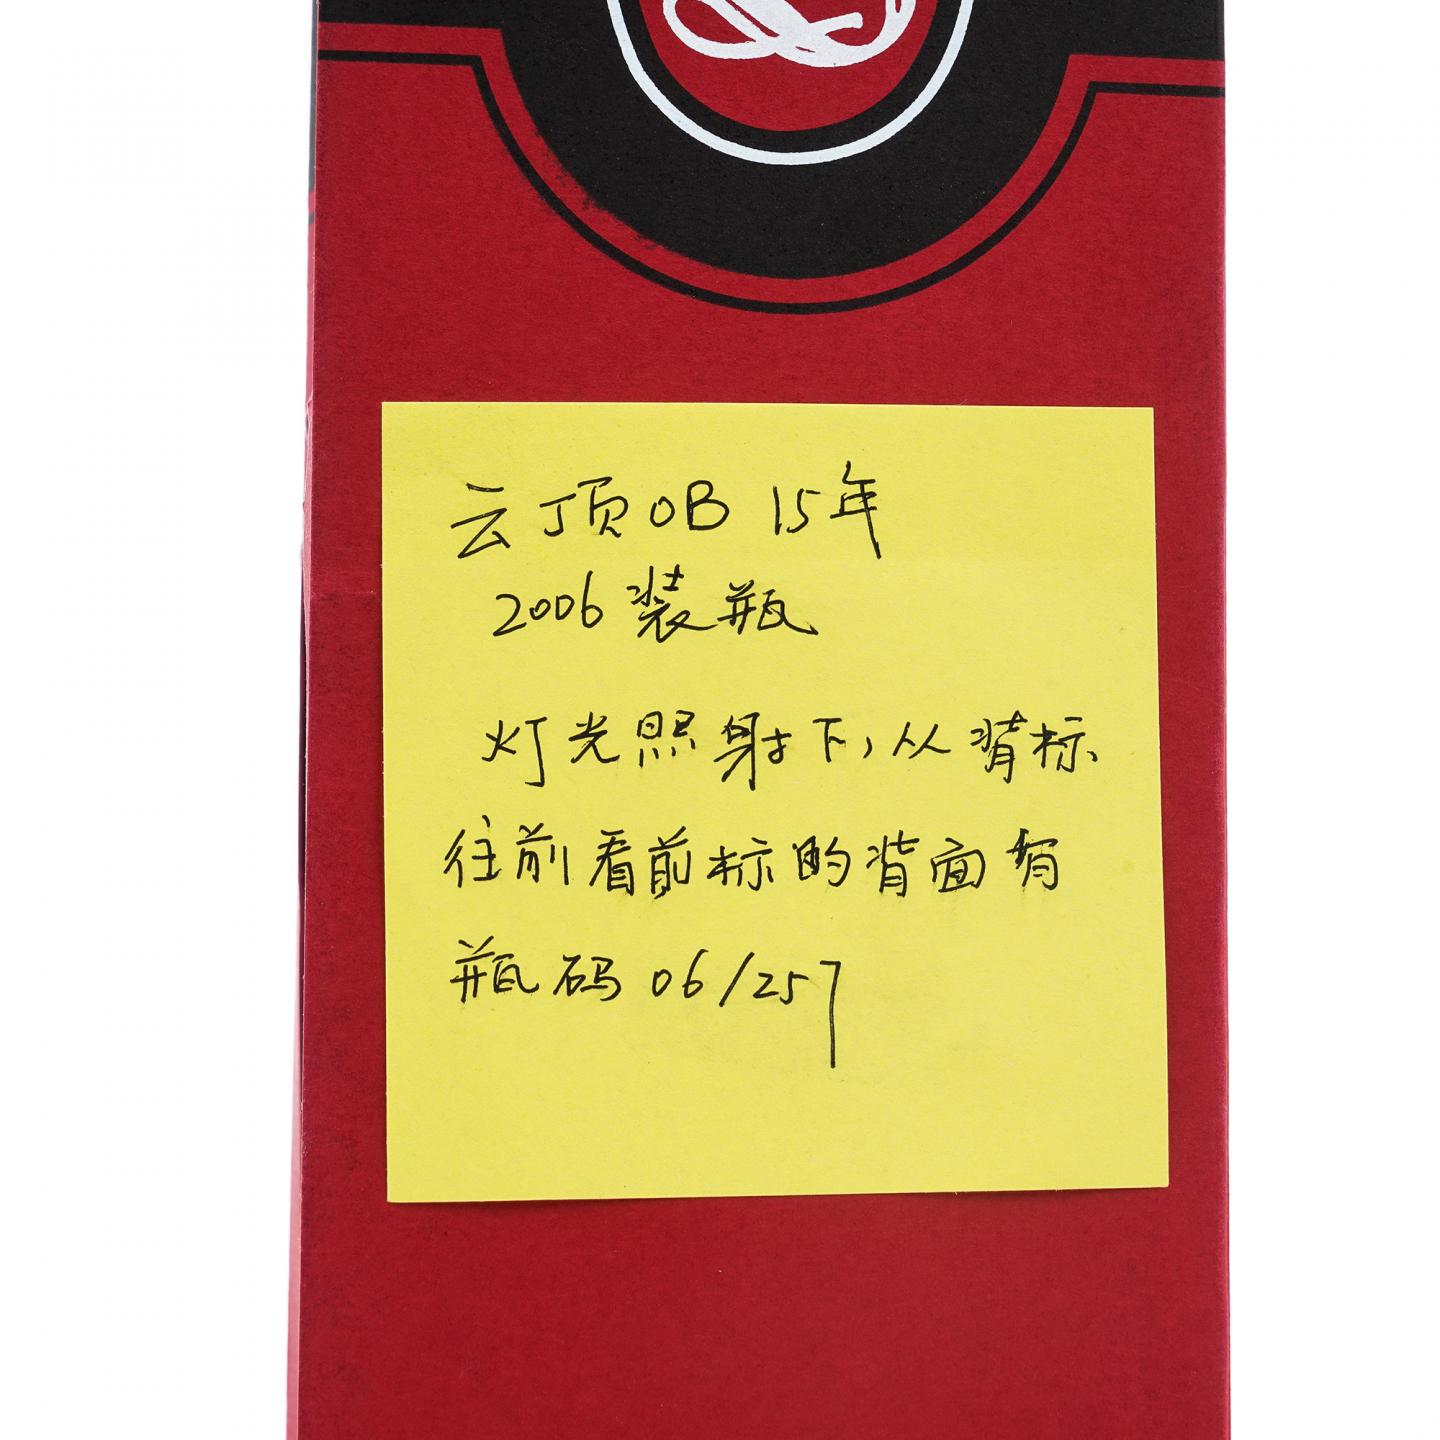 云顶OB 15年
2006装瓶
灯光照射下,从背标
往前看前标的背面有
瓶码06/257